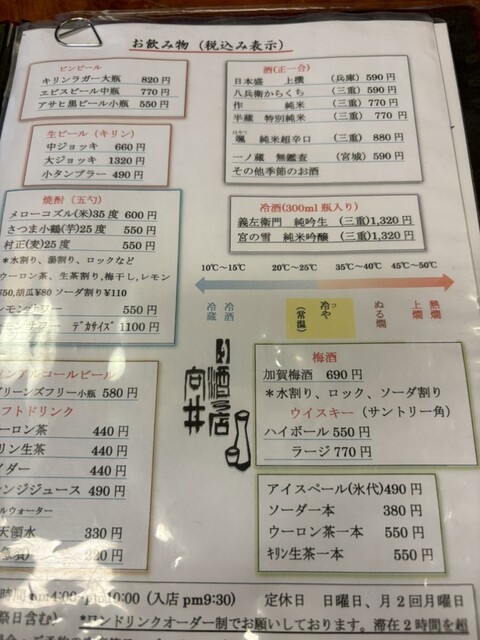 お飲み物（税込み表示）
ビンビール
キリンラガー大瓶 820円
ヱビスビール中瓶 770円
アサヒ黒ビール小瓶 550円
生ビール（キリン）
中ジョッキ 660円
大ジョッキ 1320円
小タンブラー 490円
焼酎（五勺）
メローコズル(米)35度 600円
さつま小鶴(芋)25度 550円
村正(麦)25度 550円
＊水割り、湯割り、ロックなど
ウーロン茶、生茶割り、梅干し、レモン
¥50,胡瓜¥80 ソーダ割り¥110
550円
デカサイズ 1100円
ンアルコールビール
グリーンズフリー小瓶 580円
フトドリンク
ーロン茶 440円
リン生茶 440円
イダー 440円
レンジジュース 490円
ルウォーター
天領水 330円
220円
酒(正一合)
日本盛 上撰 (兵庫) 590円
八兵衛からくち (三重) 590円
作 純米 (三重) 770円
半蔵 特別純米 (三重) 770円
はやて
颯 純米超辛口 (三重) 880円
一ノ蔵 無鑑査 (宮城) 590円
その他季節のお酒
冷酒(300ml瓶入り)
義左衛門 純吟生 (三重)1,320円
宮の雪 純米吟醸 (三重)1,320円
10℃～15℃ 20℃～25℃ 35℃～40℃ 45℃～50℃
冷蔵 冷酒 (常温) 冷や ぬる燗 上燗 熱燗
酒の店
向井
梅酒
加賀梅酒 690円
＊水割り、ロック、ソーダ割り
ウイスキー（サントリー角）
ハイボール 550円
ラージ 770円
アイスペール(氷代)490円
ソーダー本 380円
ウーロン茶一本 550円
ｷﾘﾝ生茶一本 550円
時間 pm4:00~pm10:00 (入店 pm9:30) 定休日 日曜日、月2回月曜日
祭日含む） *ワンドリンクオーダー制でお願いしております。滞在2時間を超